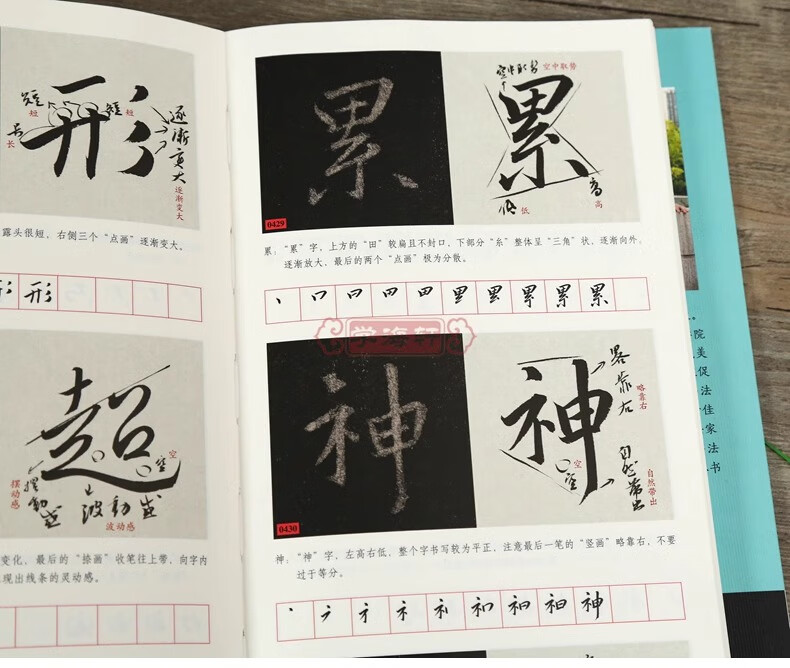 形
短
短
短
短
长
长
逐渐变大
逐渐变大
露头很短，右侧三个“点画”逐渐变大。
形
超
空
空
摆动感
摆动感
波动感
波动感
变化，最后的“捺画”收笔往上带，向字内
现出线条的灵动感。
累
0429
累
空中取势
空中取势
低
低
高
高
累：“累”字，上方的“田”较扁且不封口，下部分“糸”整体呈“三角”状，逐渐向外，
逐渐放大，最后的两个“点画”极为分散。
累
学海轩
神
0430
神
略靠右
略靠右
空
空
自然带出
自然带出
神：“神”字，左高右低，整个字书写较为平正，注意最后一笔的“竖画”略靠右，不要
过于等分。
神
院
美
促
法
佳
家
法
书